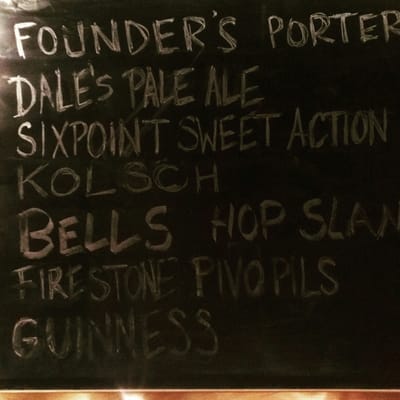 FOUNDER'S PORTER
DALE'S PALE ALE
SIXPOINT SWEET ACTION
KOLSCH
BELLS HOP SLAN
FIRESTONE PIVO PILS
GUINNESS